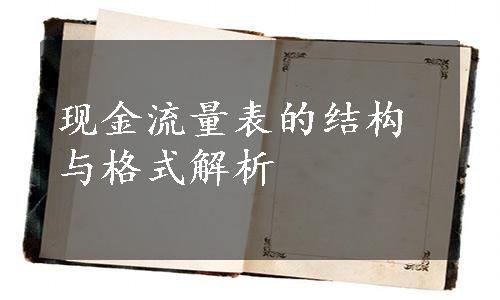 现金流量表的结构
与格式解析